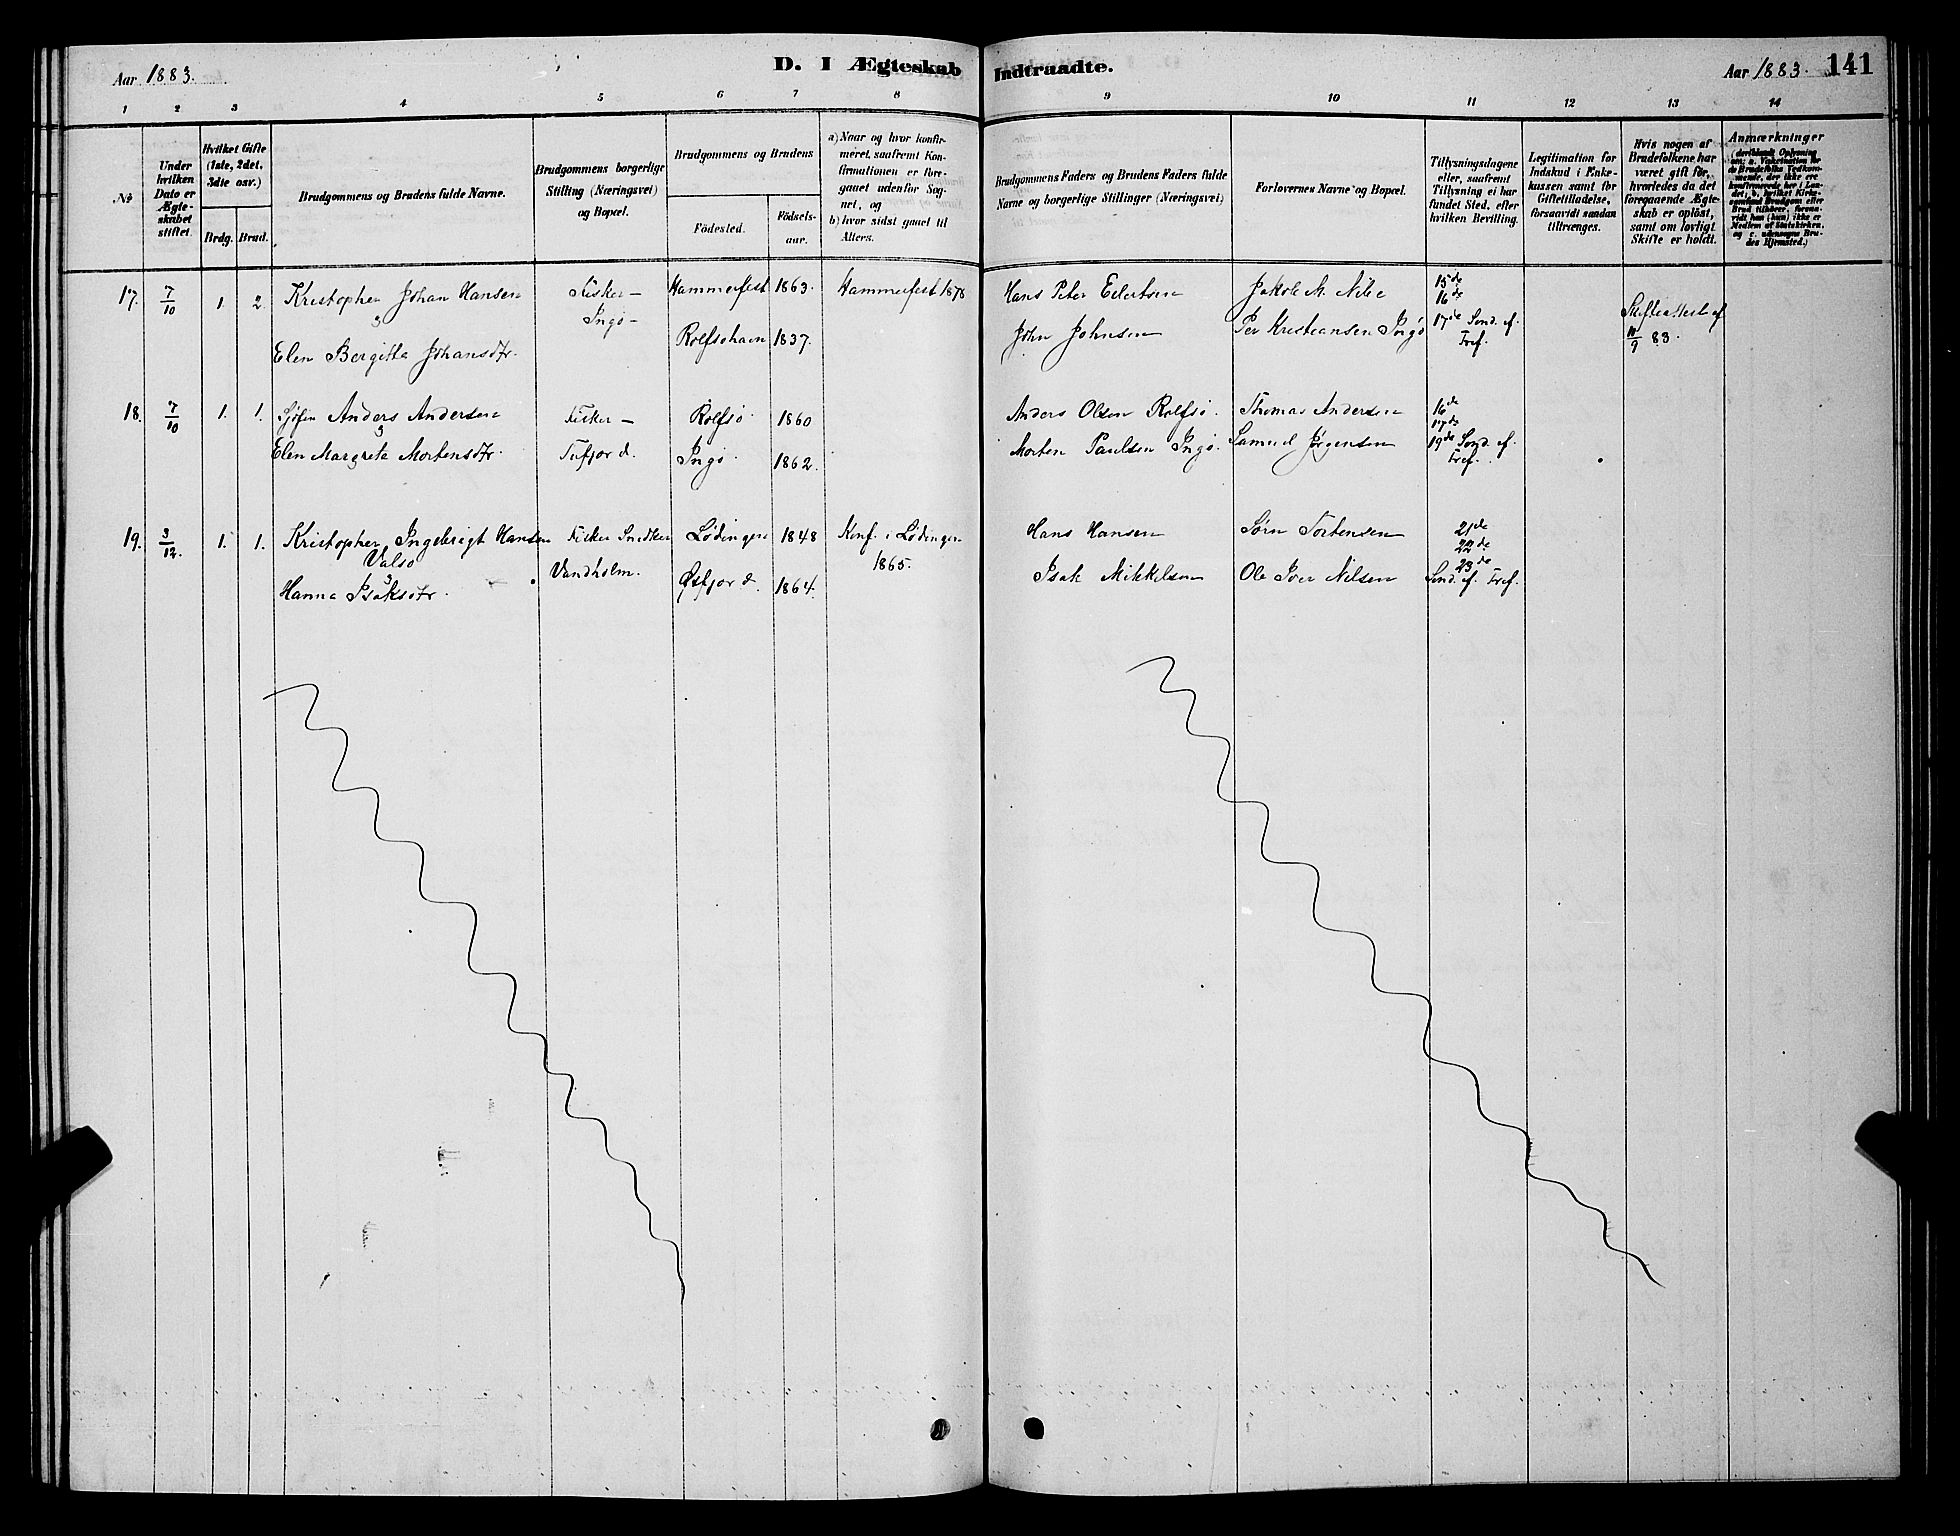 Aar 1883.
D. I Ægteskab
Indtraadte.
Aar 1883. 141
1 2 3 4 5 6 7 8 9 10 11 12 13 14
No
Under
hvilken
Dato er
Ægte-
skabet
stiftet.
Hvilket Gifte
(1ste, 2det,
3die osv.)
Brdg. Brud.
Brudgommens og Brudens fulde Navne.
Brudgommens borgerlige
Stilling (Næringsvei)
og Bopæl.
Brudgommens og Brudens
Födested.
Födsels-
aar.
a) Naar og hvor konfir-
meret, saafremt Kon-
firmationen er fore-
gaaet udenfor Sog-
net, og
b) hvor sidst gaaet til
Alters.
Brudgommens Faders og Brudens Faders fulde
Navne og borgerlige Stillinger (Næringsvei)
Forlovernes Navne og Bopæl.
Tillysningsdagene
eller, saafremt
Tillysning ei har
fundet Sted, efter
hvilken Bevilling.
Legitimation for
Indskud i Enke-
kassen samt for
Giftetilladelse,
forsaavidt saadan
tiltrænges.
Hvis nogen af
Brudefolkene har
været gift för,
hvorledes da det
foregaaende Ægte-
skab er oplöst,
samt om lovligt
Skifte er holdt.
Anmærkninger
17. 7/10 1. 2. Kristopher Johan Hansen Fisker – Hammerfest 1863. Hammerfest 1878 Hans Peter Eilertsen Jakob M. 15de
og Ingø – 16de
Elen Bergitta Johansdtr. Rolfsøhavn 1837. John Johnsen Per Kristiansen Ingø 17de Sønd. ef. Skifteattest af
Tref. 11/9 83.
18. 7/10 1. 1. Anders Andersen Fisker – Rolfsø 1860 Anders Olsen Rolfsø. Thomas Andersen 16de
og 17de
Elen Margreta Mortensdtr. Tufjord. Ingø. 1862. Morten Paulsen Ingø. Samuel Jørgensen 19de Sønd. ef.
Tref.
19. 3/12. 1. 1. Kristopher Ingebrigt Hansen Fisker Snedker Lødingen 1848 Konf. i Lødingen Hans Hansen Sørn Tortensen 21de
Valsø 1865. 22de
og Vandholm. 23de
Hanna Isaksdtr. Østfjord 1864. Isak Mikkelsen Ole Iver Nilsen Sønd. ef. Tref.